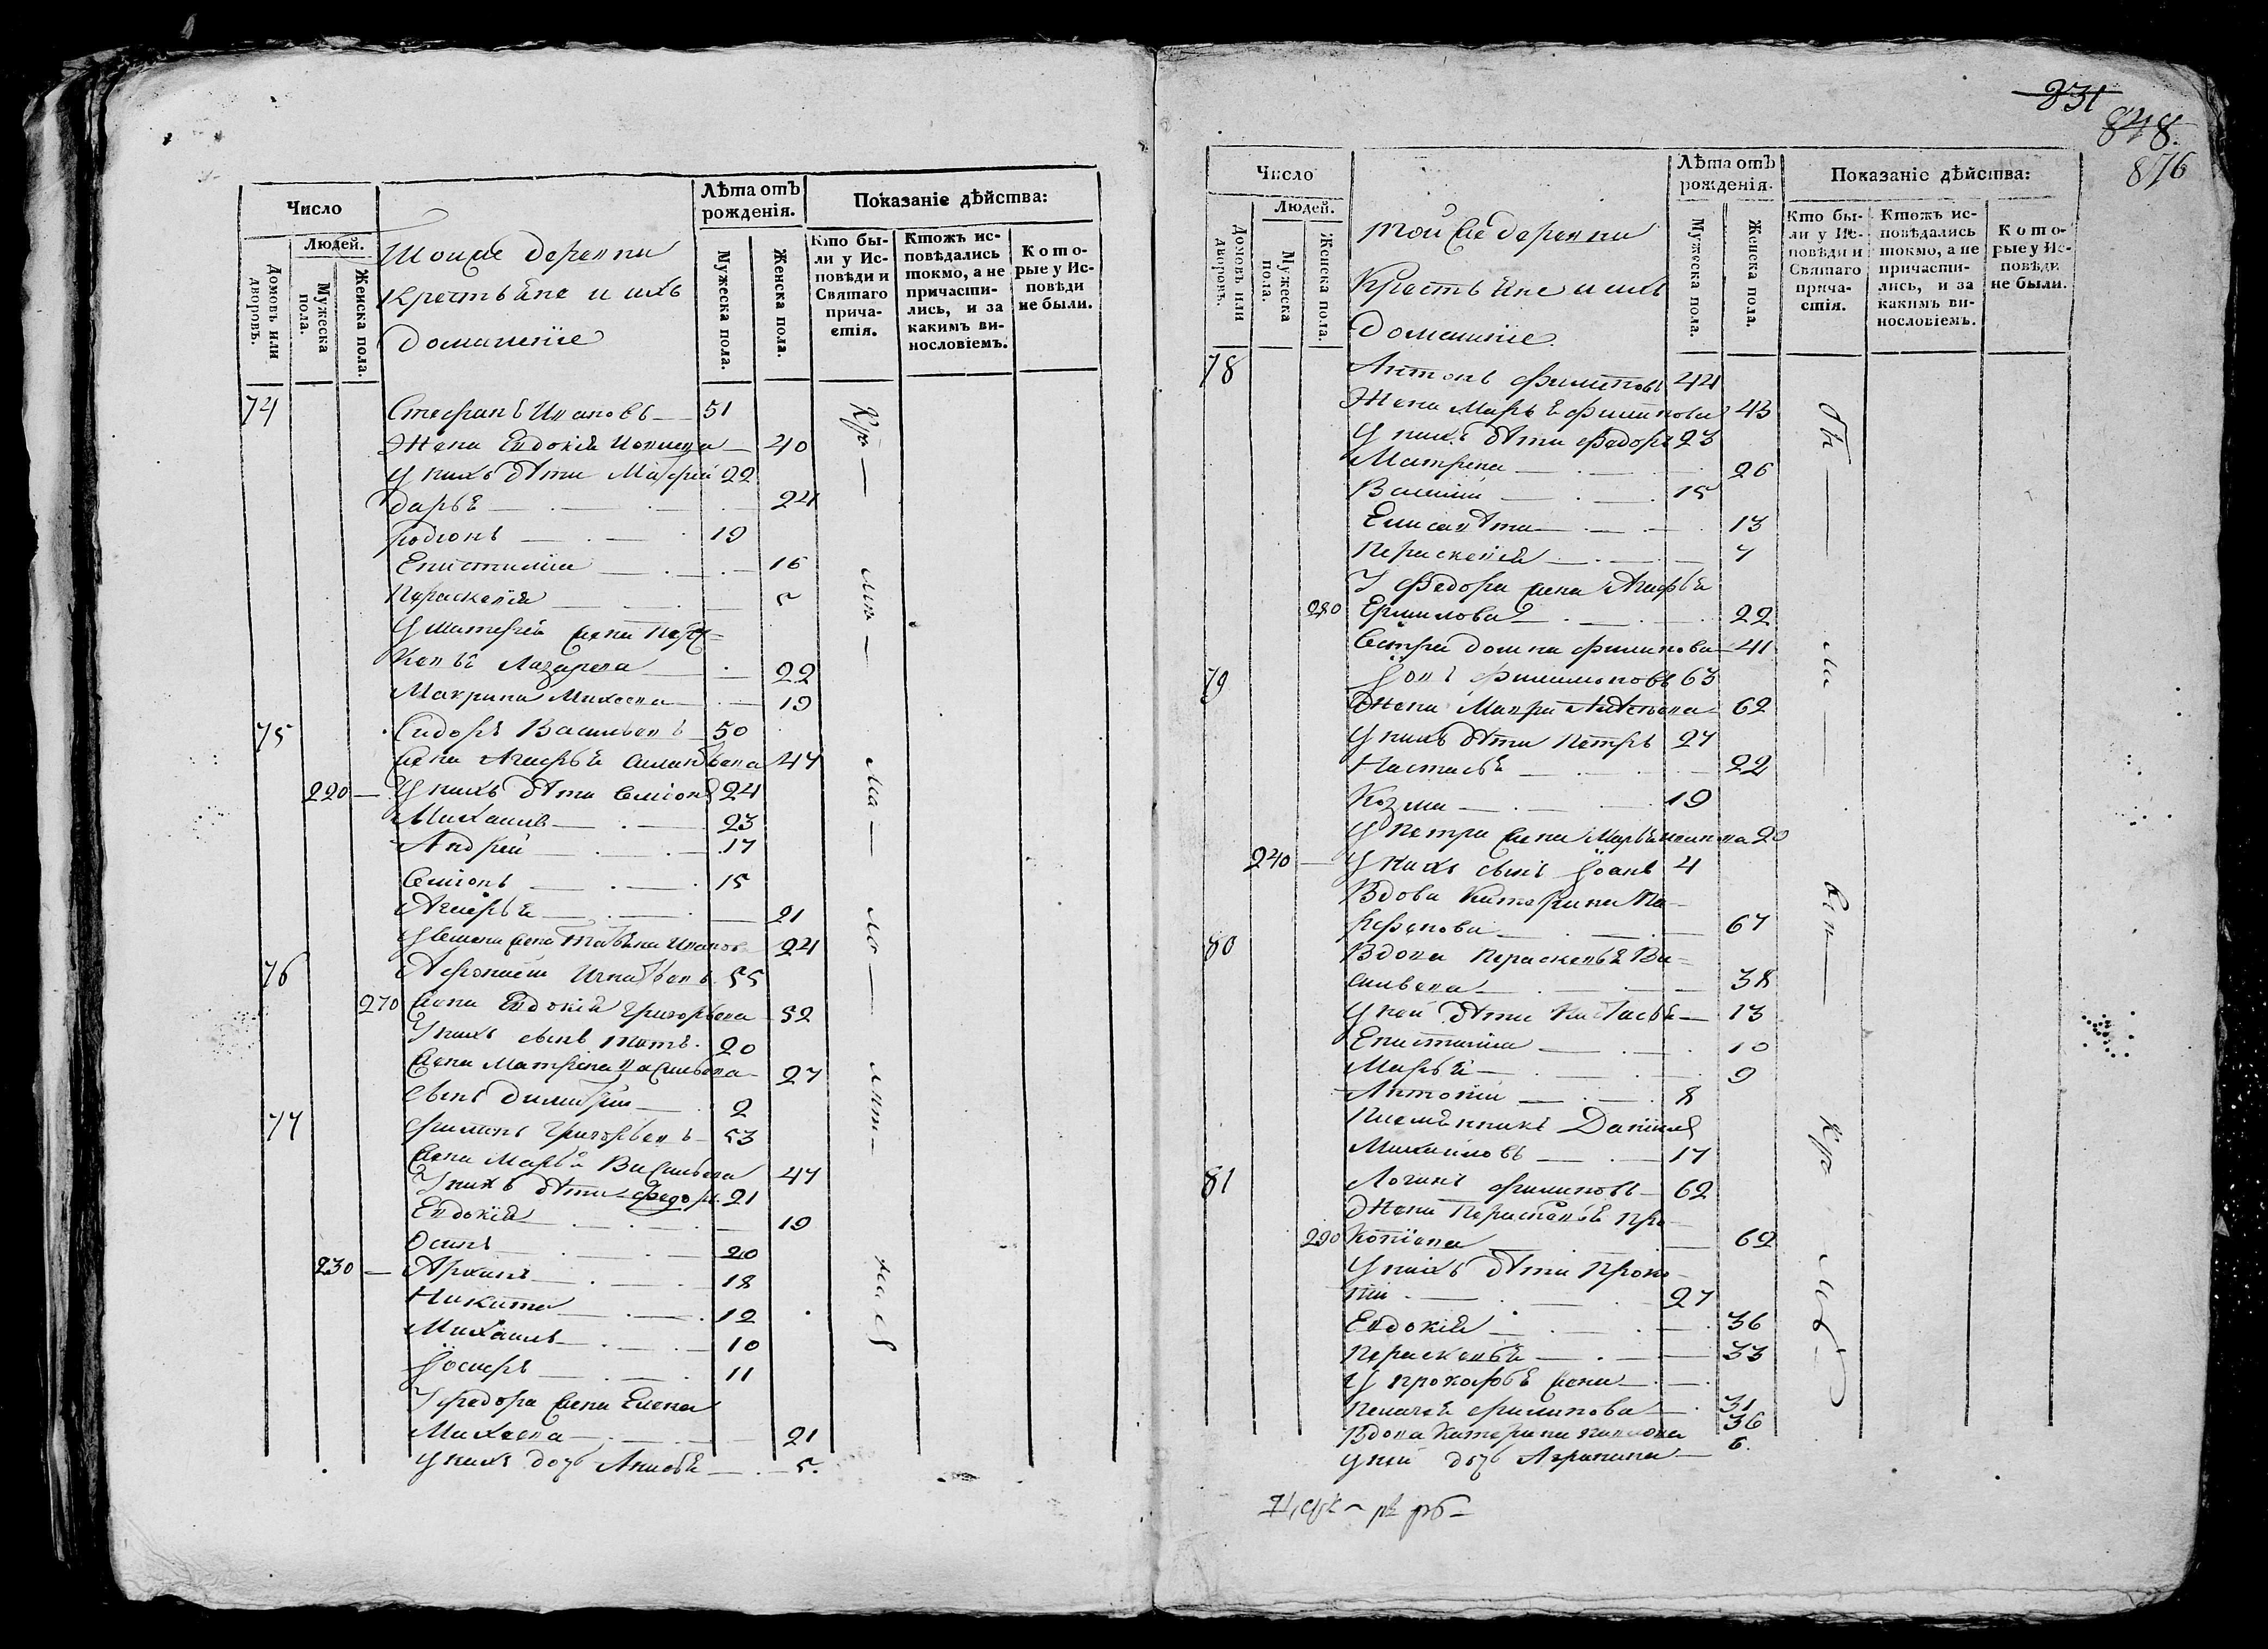 Число
Людей.
Домовъ или дворовъ.
Мужеска пола.
Женска пола.
Тоиже деревни
крестьяне и ихъ
домашнїе
Лѣта отъ рожденія.
Мужеска пола.
Женска пола.
Показаніе дѣйства:
Кто бы-
ли у Ис-
повѣди и
Святаго
прича-
стія.
Ктожъ ис-
повѣдались
токмо, а не
причасти-
лись, и за
какимъ ви-
нословіемъ.
Кото-
рые у Ис-
повѣди
не были.
74 Стефанъ Ивановъ 51
Жена Евдокія 40
У нихъ дѣти 22
Дарья 24
Родионъ 19
Епистимия 16
Пераскевїя 5
жена Перас=
ковья Лазарева 22
Макрина Михеева 19
75 Сидоръ Васильевъ 50
жена Агафья 47
220 У нихъ дѣти Семіонъ 24
Михаилъ 23
Андрей 17
Семіонъ 15
Агафья 21
жена Татьяна Иванов 24
76 Афонасеи Игнатьевъ 55
270 жена Евдокія Григорьева 52
У нихъ сынъ Титъ 20
жена Матрена Васильева 27
сынъ Димитрии 2
77 Филипъ Григорьевъ 53
жена Марья Васильева 47
У нихъ дѣти Федоръ 21
Евдокїя 19
Осипъ 20
230 Архипъ 18
Никита 12
Михаилъ 10
Іосифъ 11
У Федора жена Елена
Михеева 21
у нихъ дочь Анисья 5
Кр
ма
831
848.
876
Число
Людей.
Домовъ или дворовъ.
Мужеска пола.
Женска пола.
Той же деревни
Крестьяне и ихъ
Домашнїе.
Лѣта отъ рожденія.
Мужеска пола.
Женска пола.
Показаніе дѣйства:
Кто бы-
ли у Ис-
повѣди и
Святаго
прича-
стія.
Ктожъ ис-
повѣдались
токмо, а не
причасти-
лись, и за
какимъ ви-
нословіемъ.
Кото-
рые у Ис-
повѣди
не были.
78 Антонъ Филиповъ 44
Жена Марья Филипова 43
У нихъ дѣти Федоръ 23
Матрена 26
Василий 15
Елисавѣта 13
Пераскевїя 7
У Федора жена Агафья
280 Ермилова 22
Сестра Домна Филипова 41
79 Іовъ Филимоновъ 63
Жена Мавра 62
У нихъ дѣти Петръ 27
Настасья 22
Козма 19
У Петра жена Марья 20
240 У нихъ сынъ Іоанъ 4
Вдова Катерина Па-
рфенова 67
80 Вдова Пераскевья Ва=
сильева 38
У ней дѣти Настасья 13
Епистимия 10
Марья 9
Антоній 8
Племянникъ Данїилъ
Михайловъ 17
81 Логинъ Филиповъ 62
Жена Пераскевья Про-
290 копїева 62
У нихъ дѣти Проко-
пии 27
Евдокїя 36
Пераскевья 33
У Прокофья жена
Пелагея Филипова 31
Вдова Катерина 36
у ней дочь Агрипина 6.